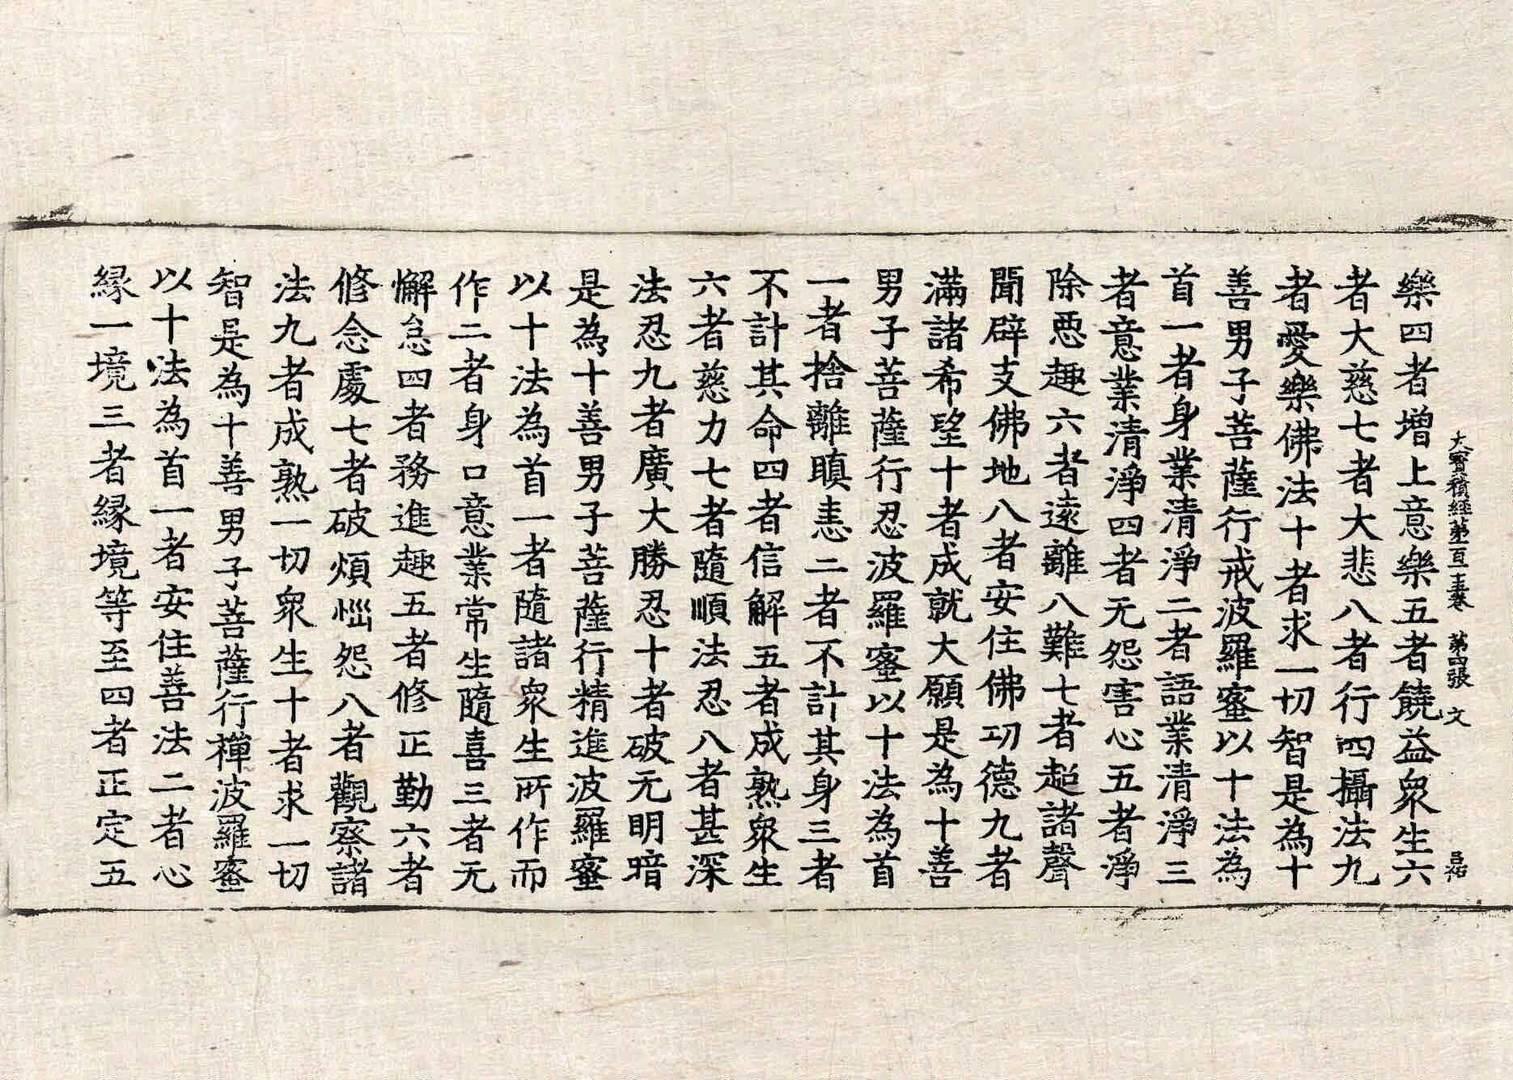 大寶積經第一百一十五卷 第四張 文
樂四者增上意樂五者饒益衆生六
者大慈七者大悲八者行四攝法九
者愛樂佛法十者求一切智是為十
善男子菩薩行戒波羅蜜以十法為
首一者身業清淨二者語業清淨三
者意業清淨四者无怨害心五者淨
除惡趣六者遠離八難七者超諸聲
聞辟支佛地八者安住佛功德九者
滿諸希望十者成就大願是為十善
男子菩薩行忍波羅蜜以十法為首
一者捨離瞋恚二者不計其身三者
不計其命四者信解五者成熟衆生
六者慈力七者隨順法忍八者甚深
法忍九者廣大勝忍十者破无明暗
是為十善男子菩薩行精進波羅蜜
以十法為首一者隨諸衆生所作而
作二者身口意業常生隨喜三者无
懈怠四者務進趣五者修正勤六者
修念處七者破煩惱怨八者觀察諸
法九者成熟一切衆生十者求一切
智是為十善男子菩薩行禪波羅蜜
以十法為首一者安住善法二者心
縁一境三者縁境等至四者正定五